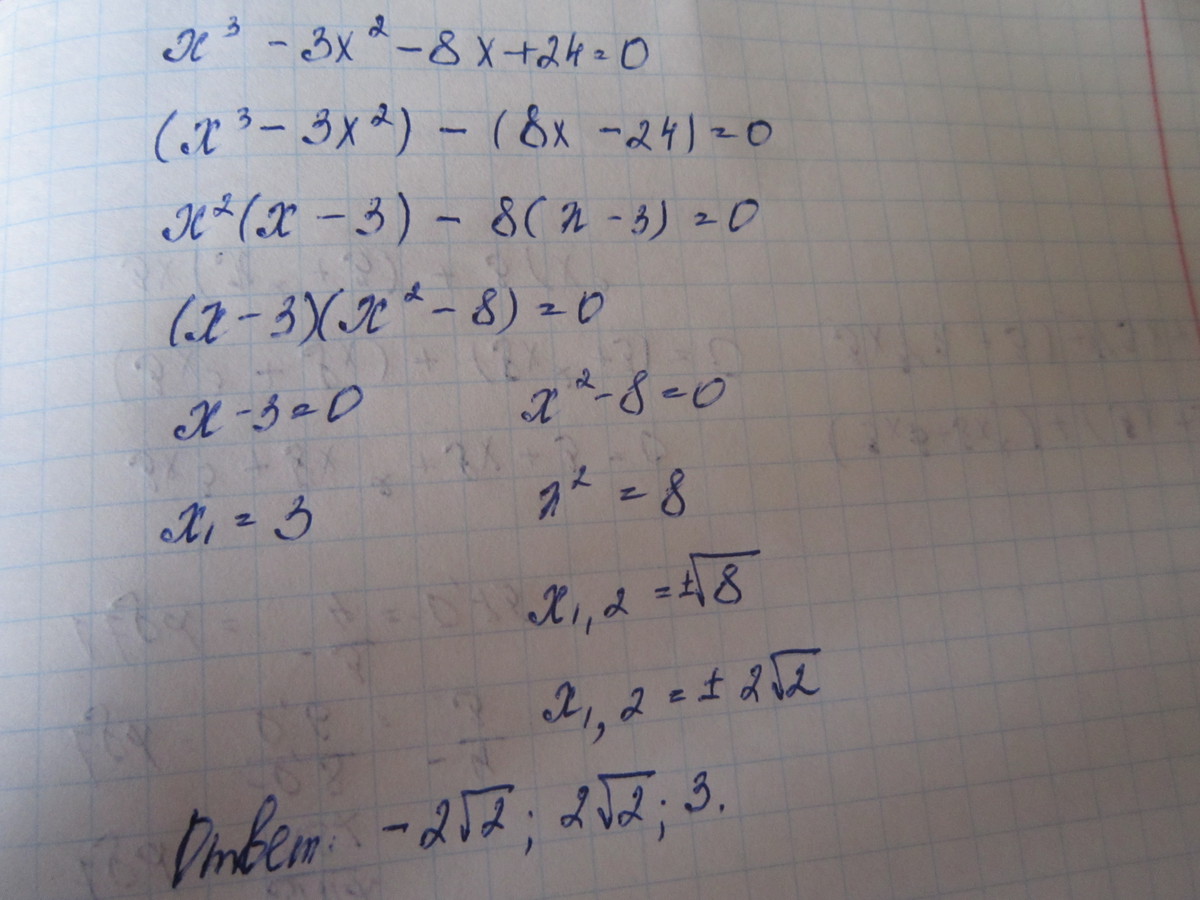 x³ - 3x² - 8x + 24 = 0
(x³ - 3x²) - (8x - 24) = 0
x²(x - 3) - 8(x - 3) = 0
(x - 3)(x² - 8) = 0
x - 3 = 0 x² - 8 = 0
x₁ = 3 x² = 8
x₁,₂ = ±√8
x₁,₂ = ± 2√2
Ответ: -2√2; 2√2; 3.